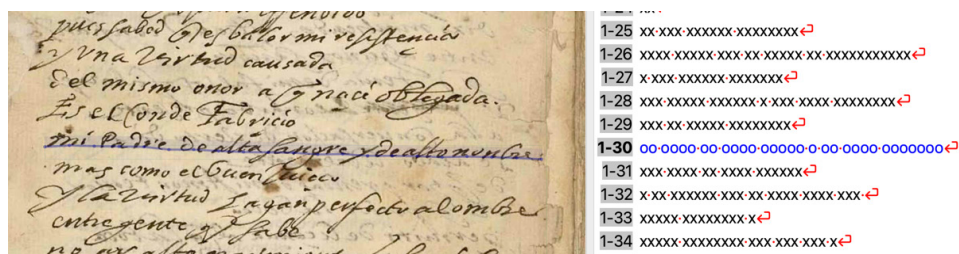 pues sabed q̃ es balor mi resistencia
y Vna Virtud causada
del mismo onor a q̃ naci obligada.
Es el Conde Fabricio
mi Padre de alta sangre y de alto nonbre
mas como el buen juicio
y la Virtud agan perfecto al ombre
entre gente q̃ sabe
1-25 xx·xxx·xxxxxx·xxxxxxxx
1-26 xxxx·xxxxx·xxx·xx·xxxxx·xx·xxxxxxxxxxx
1-27 x·xxx·xxxxxx·xxxxxxx
1-28 xxx·xxxxx·xxxxxx·x·xxx·xxxx·xxxxxxxx
1-29 xxx·xx·xxxxx·xxxxxxxx
1-30 oo·oooo·oo·oooo·ooooo·o·oo·oooo·ooooooo
1-31 xxx·xxxx·xx·xxxx·xxxxxx
1-32 x·xx·xxxxxx·xx·xx·xxxx·xxxx·xxx·
1-33 xxxxx·xxxxxxxx·x
1-34 xxxxx·xxxxxxxx·xxx·xxx·xxx·x